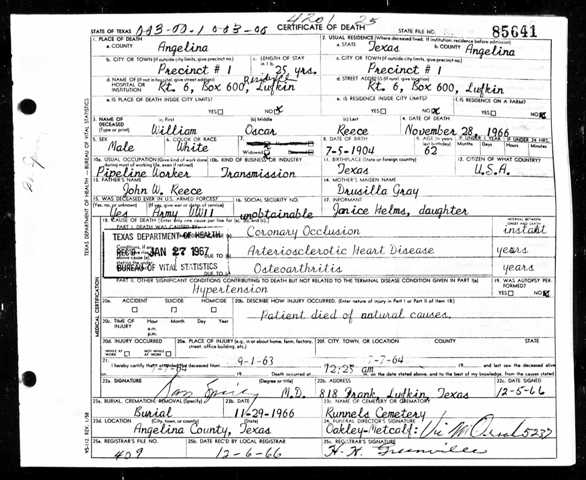 003-00-1 003-00 4201 25
STATE OF TEXAS CERTIFICATE OF DEATH STATE FILE NO. 85641
1. PLACE OF DEATH 2. USUAL RESIDENCE (Where deceased lived. If institution: residence before admission)
a. COUNTY Angelina a. STATE Texas b. COUNTY Angelina
b. CITY OR TOWN (If outside city limits, give precinct no.) c. LENGTH OF STAY c. CITY OR TOWN (If outside city limits, give precinct no.)
Precinct # 1 25 yrs. Precinct # 1
d. NAME OF (If not in hospital, give street address) d. STREET ADDRESS (If rural, give location)
Rt. 6, Box 600, Lufkin Residence Rt. 6, Box 600, Lufkin
e. IS PLACE OF DEATH INSIDE CITY LIMITS? YES NO e. IS RESIDENCE INSIDE CITY LIMITS? YES NO f. IS RESIDENCE ON A FARM? YES NO
3. NAME OF DECEASED (Type or print) (a) First (b) Middle (c) Last 4. DATE OF DEATH
William Oscar Reece November 28, 1966
5. SEX 6. COLOR OR RACE 7. 8. DATE OF BIRTH 9. AGE
Male White Widowed 7-5-1904 62
10a. USUAL OCCUPATION (Give kind of work done 10b. KIND OF BUSINESS OR INDUSTRY 11. BIRTHPLACE (State or foreign country) 12. CITIZEN OF WHAT COUNTRY?
Pipeline Worker Transmission Texas U.S.A.
13. FATHER'S NAME 14. MOTHER'S MAIDEN NAME
John W. Reece Drusilla Gray
15. WAS DECEASED EVER IN U.S. ARMED FORCES? 16. SOCIAL SECURITY NO. 17. INFORMANT
Yes Army WWII unobtainable Janice Helms, daughter
18. CAUSE OF DEATH INTERVAL BETWEEN
PART I. DEATH WAS CAUSED BY: Coronary Occlusion instant
TEXAS DEPARTMENT OF HEALTH
REC'D JAN 27 1967 DUE TO Arteriosclerotic Heart Disease years
BUREAU OF VITAL STATISTICS DUE TO Osteoarthritis years
PART II. OTHER SIGNIFICANT CONDITIONS CONTRIBUTING TO DEATH BUT NOT RELATED TO THE TERMINAL DISEASE CONDITION GIVEN IN PART I(a) 19. WAS AUTOPSY PERFORMED?
Hypertension YES NO
20a. ACCIDENT SUICIDE HOMICIDE 20b. DESCRIBE HOW INJURY OCCURRED. (Enter nature of injury in Part I or Part II of item 18.)
Patient died of natural causes.
20c. TIME OF INJURY Hour Month Day Year
a.m.
p.m.
20d. INJURY OCCURRED 20e. PLACE OF INJURY (e.g., in or about home, farm, factory, street, office building, etc.) 20f. CITY, TOWN, OR LOCATION COUNTY STATE
21. I hereby certify that I attended the deceased from 9-1-63 7-7-64 and last saw the deceased alive
Death occurred at 12:25 am on the date stated above, and to the best of my knowledge, from the causes stated.
22a. SIGNATURE (Degree or title) 22b. ADDRESS 22c. DATE SIGNED
M.D. 818 Frank, Lufkin, Texas 12-5-66
23a. BURIAL, CREMATION, REMOVAL (Specify) 23b. DATE 23c. NAME OF CEMETERY OR CREMATORY
Burial 11-29-1966 Runnels Cemetery
23d. LOCATION (City, town, or county) (State) 24. FUNERAL DIRECTOR'S SIGNATURE
Angelina County, Texas Oakley-Metcalf: 5237
25a. REGISTRAR'S FILE NO. 25b. DATE REC'D BY LOCAL REGISTRAR 25c. REGISTRAR'S SIGNATURE
409 12-6-66
TEXAS DEPARTMENT OF HEALTH — BUREAU OF VITAL STATISTICS
MEDICAL CERTIFICATION
VS-112 REV. 1/58